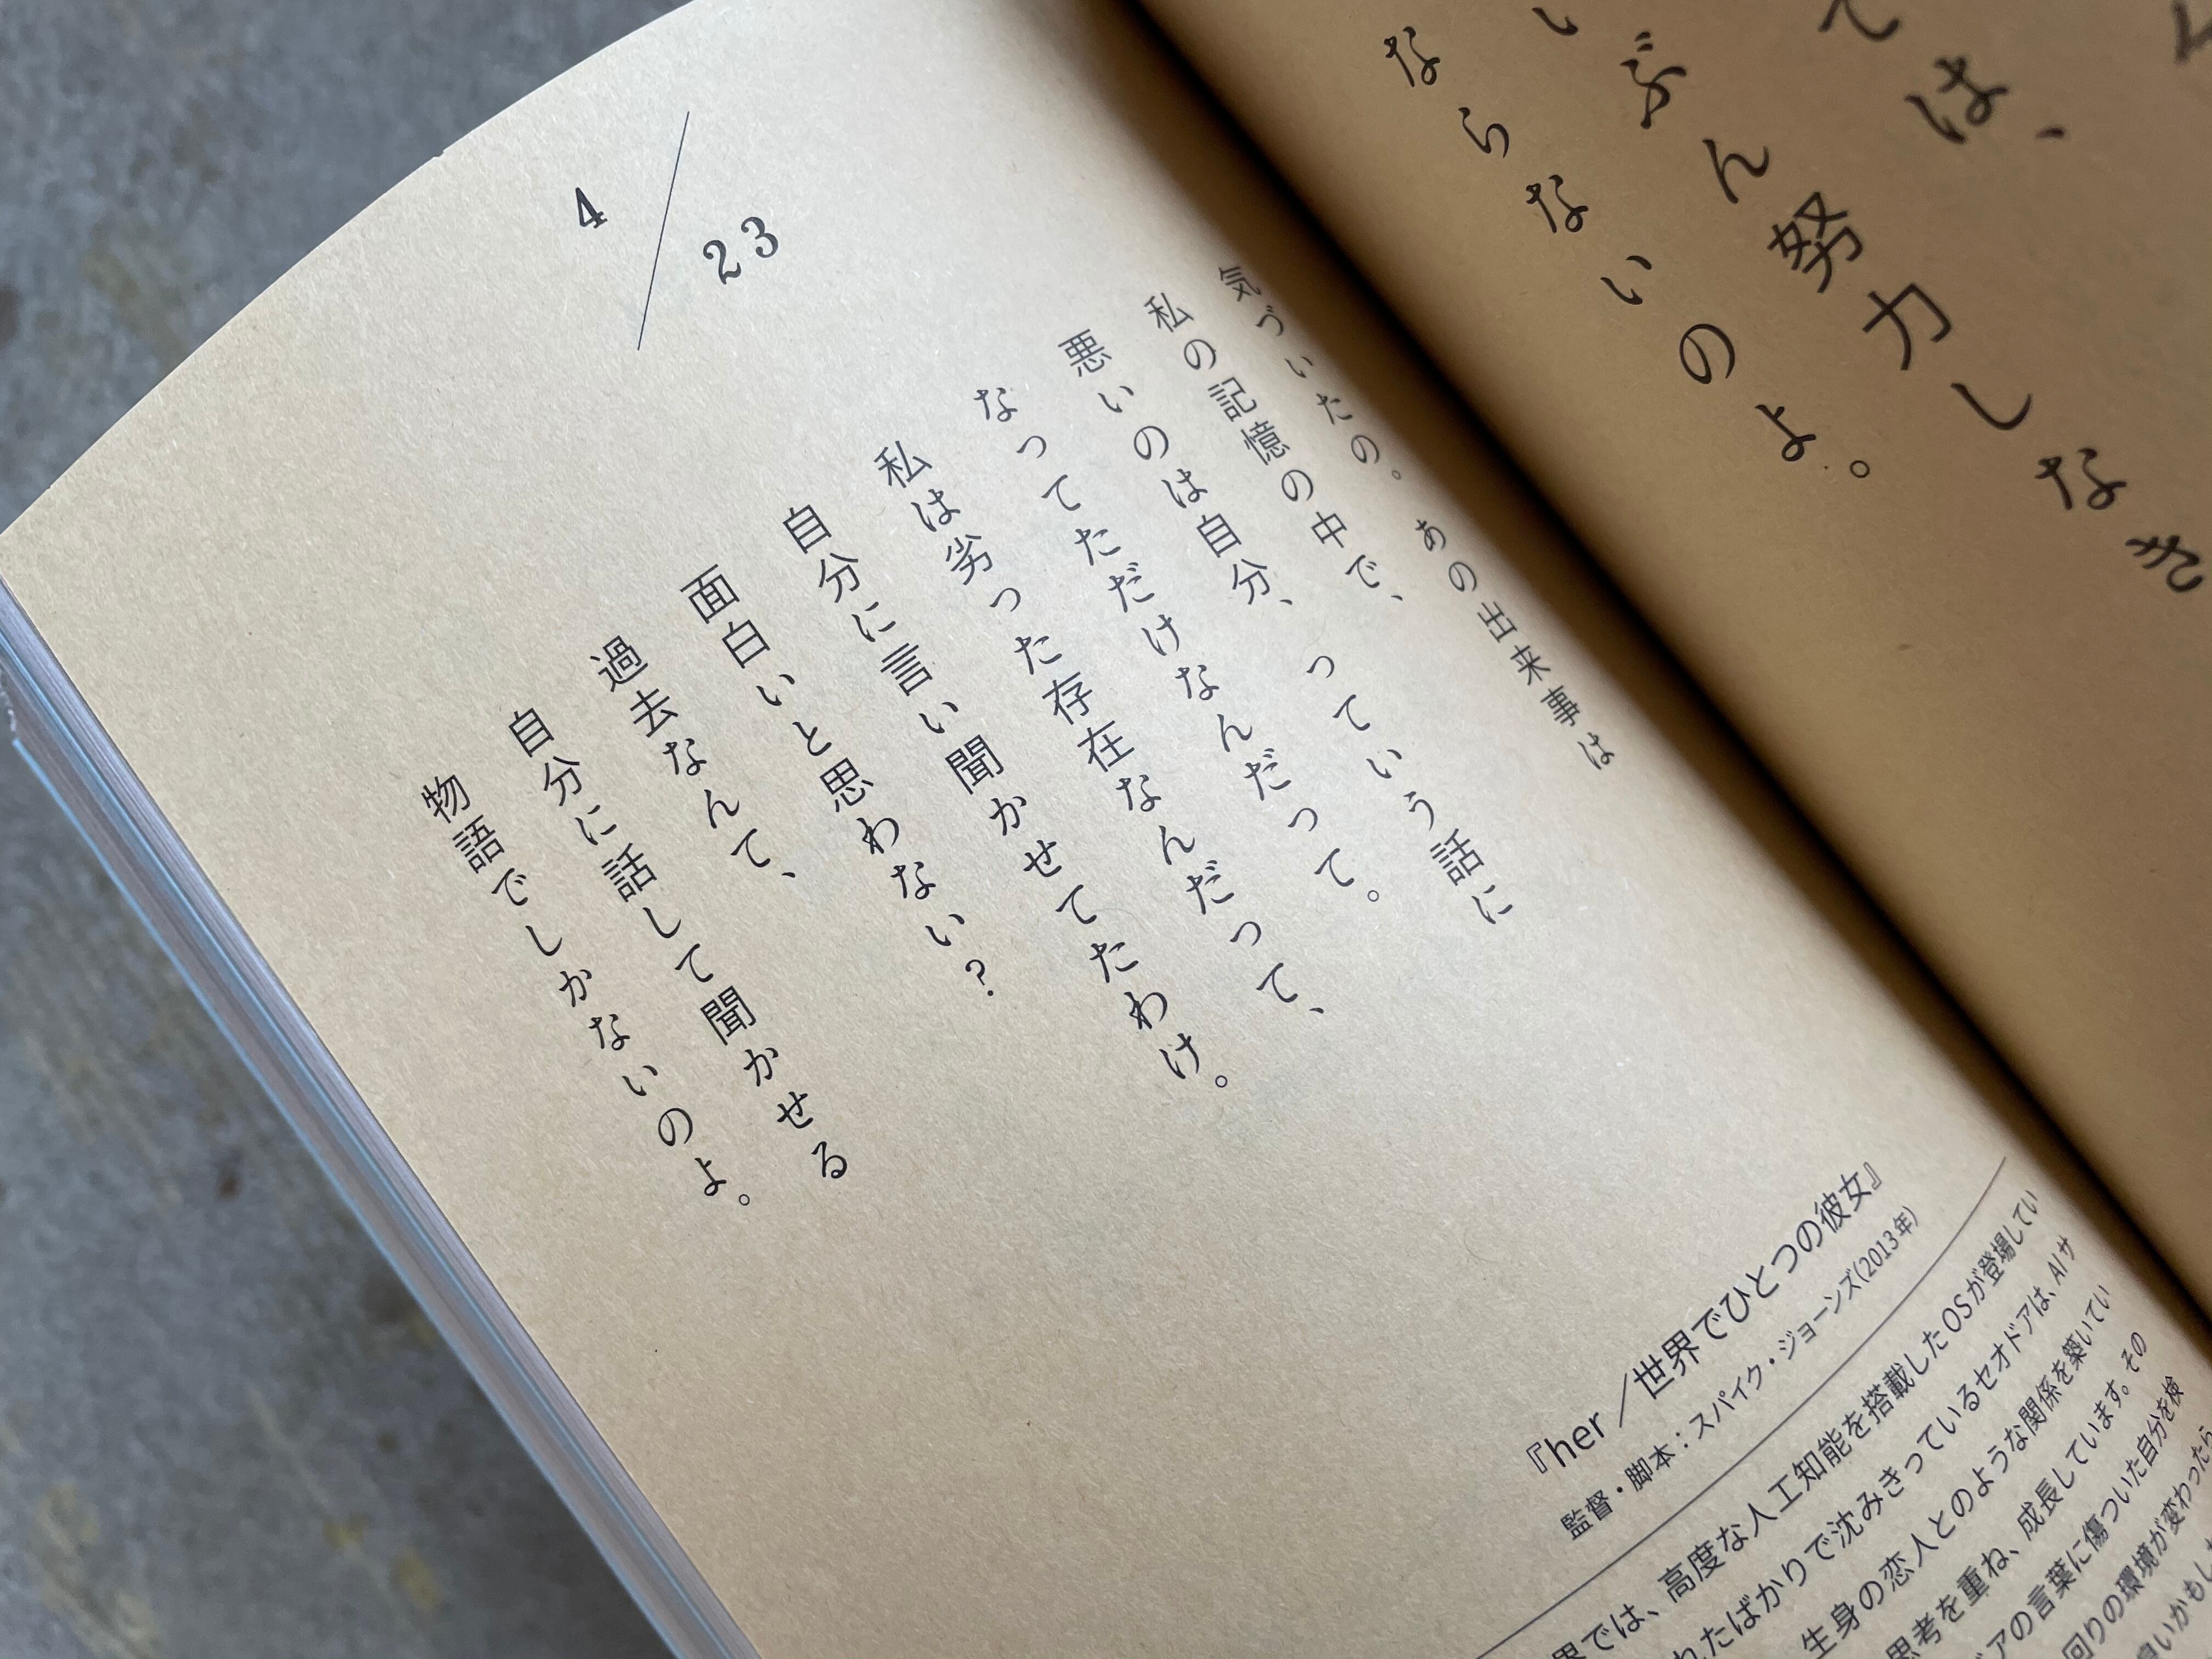 ては、
ぶん努力しなき
ならないのよ。
4/23
気づいたの。あの出来事は
私の記憶の中で、
悪いのは自分、っていう話に
なってただけなんだって。
私は劣った存在なんだって、
自分に言い聞かせてたわけ。
面白いと思わない?
過去なんて、
自分に話して聞かせる
物語でしかないのよ。
『her/世界でひとつの彼女』
監督・脚本:スパイク・ジョーンズ(2013年)
界では、高度な人工知能を搭載したOSが登場してい
れたばかりで沈みきっているセオドアは、AIサ
生身の恋人とのような関係を築いてい
思考を重ね、成長しています。その
アの言葉に傷ついた自分を検
回りの環境が変わったら
良いかもし